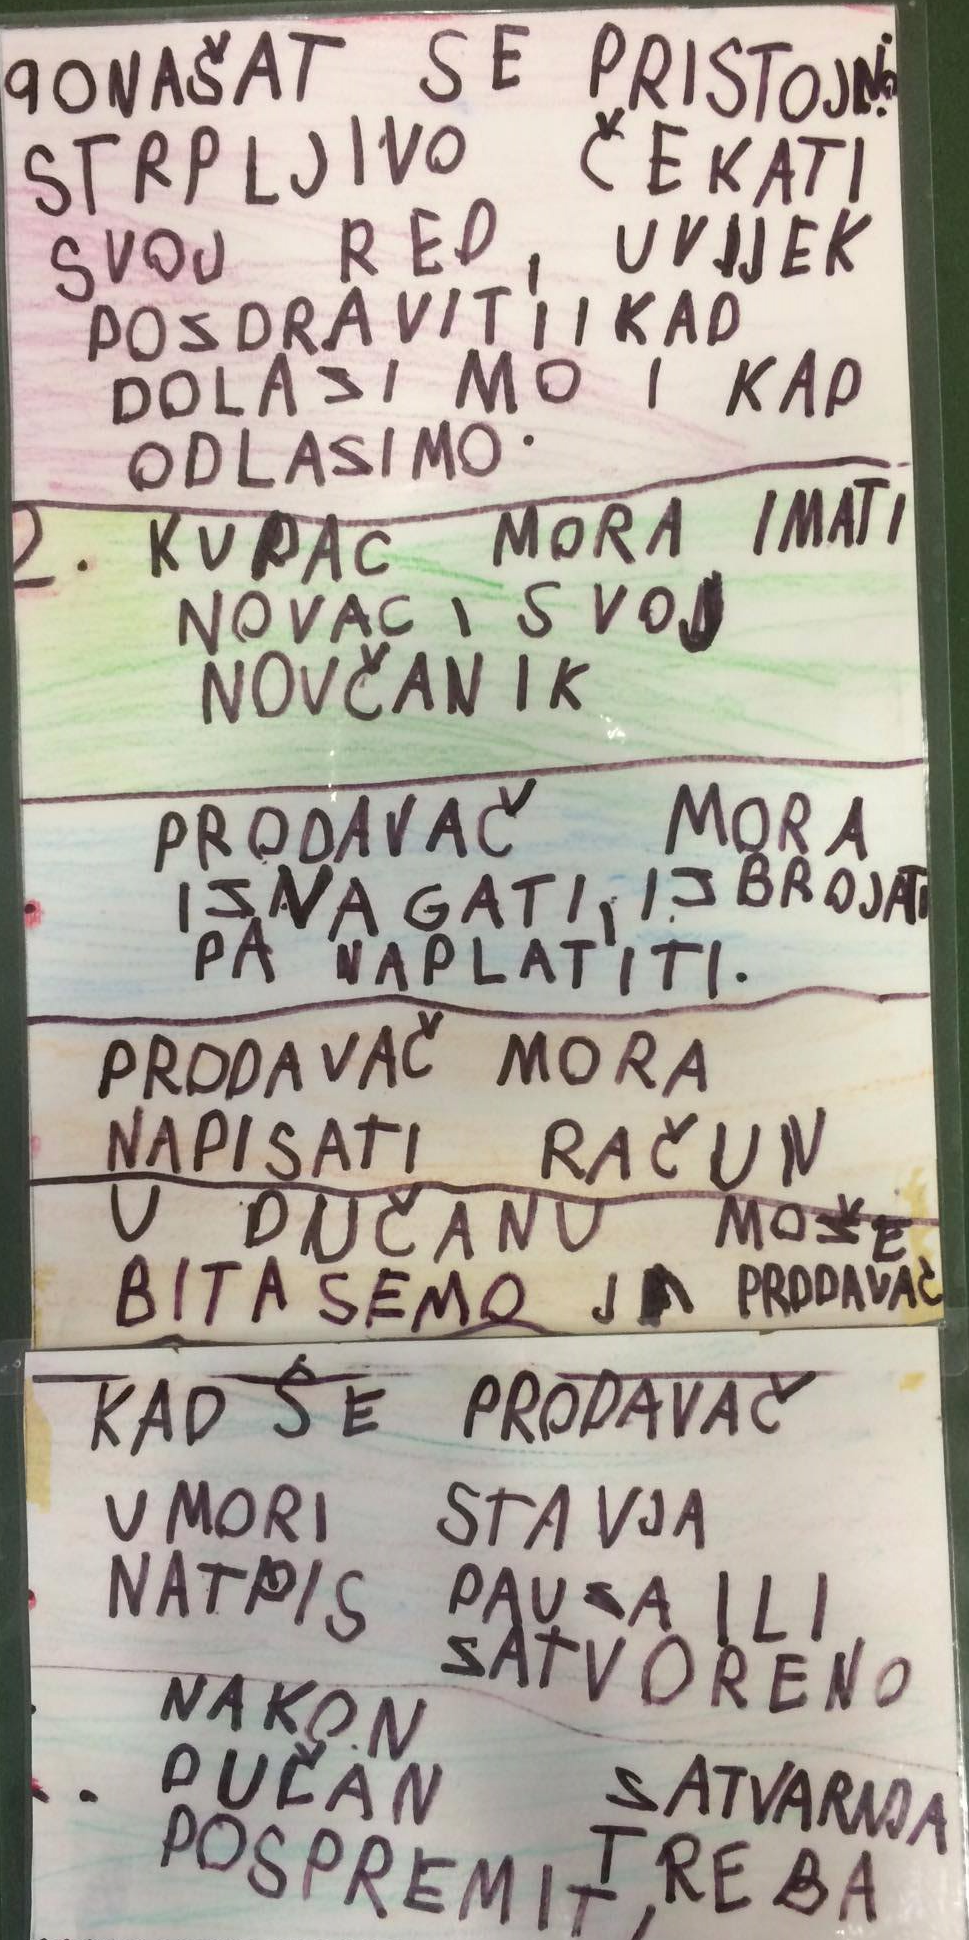 PONAŠAT SE PRISTOJNO
STRPLJIVO ČEKATI
SVOJ RED, UVIJEK
POSDRAVITI I KAD
DOLASIMO I KAD
ODLASIMO.
2. KUPAC MORA IMATI
NOVAC I SVOJ
NOVČANIK
PRODAVAČ MORA
ISVAGATI, ISBROJATI
PA NAPLATITI.
PRODAVAČ MORA
NAPISATI RAČUN
U DUČANU MOŠE
BITASEMO JA PRODAVAČ
KAD SE PRODAVAČ
UMORI STAVJA
NATPIS PAUSA ILI
SATVORENO
NAKON
DUČAN SATVARNJA
POSPREMIT, TREBA